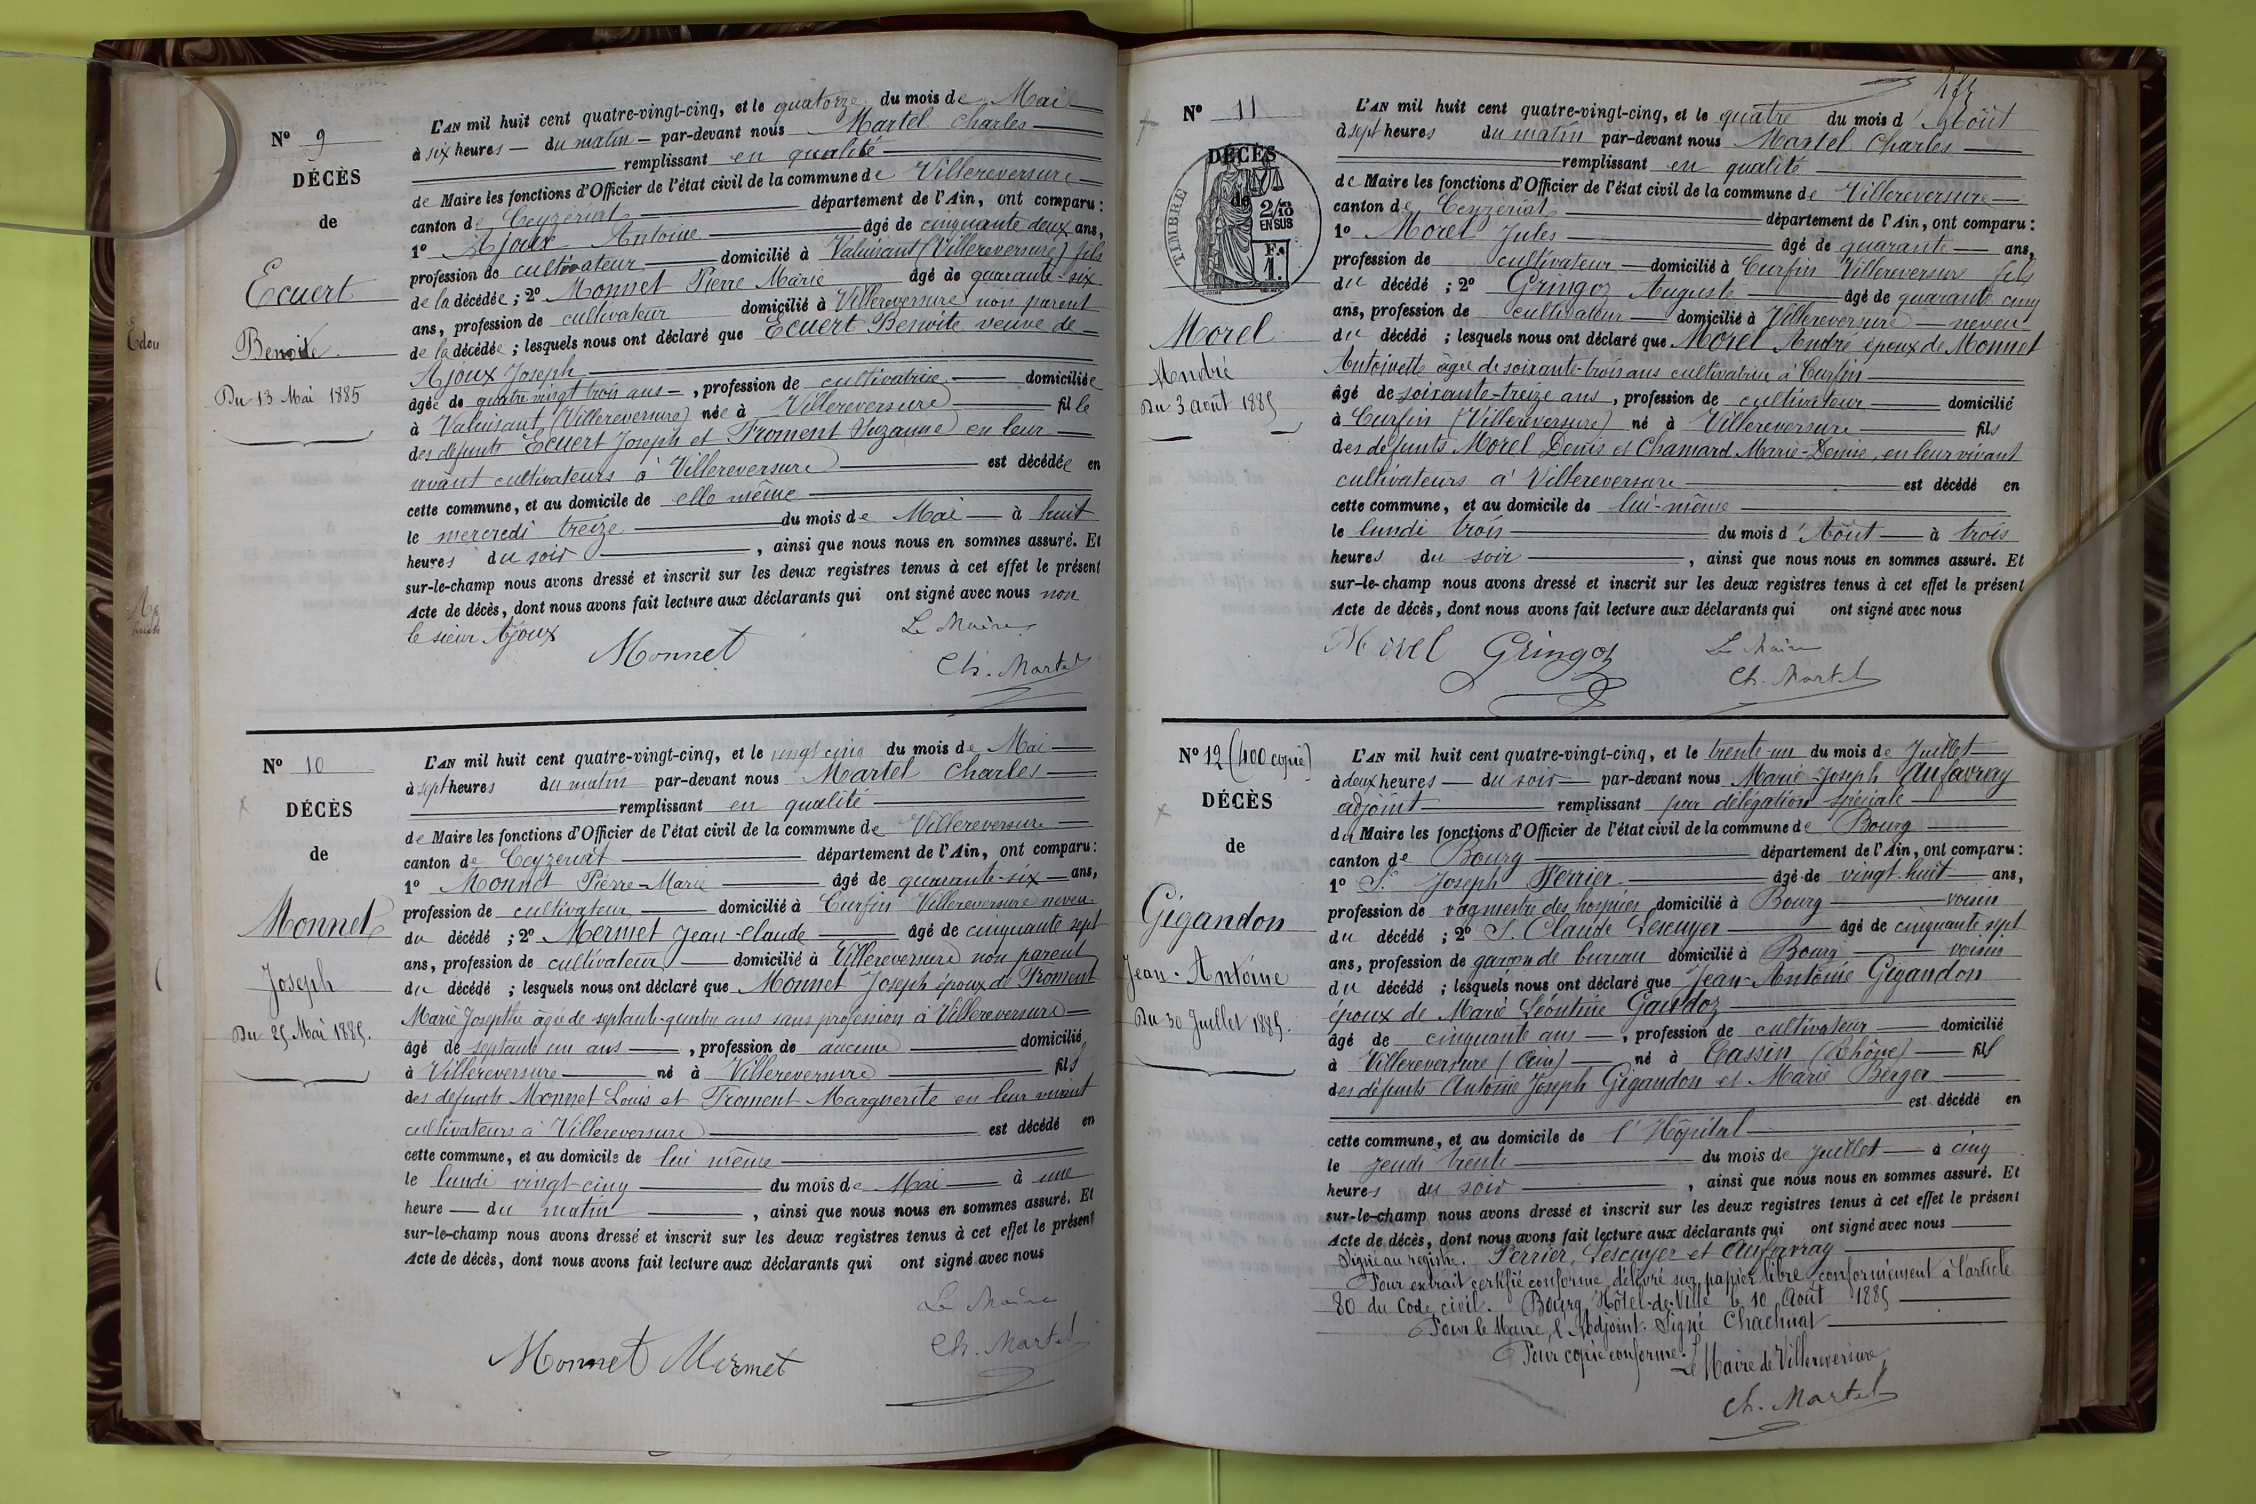 Edou
N° 9
DÉCÈS
de
Ecuert
Benoite
Du 13 Mai 1885
L'AN mil huit cent quatre-vingt-cinq, et le quatorze du mois de Mai
à six heures du matin par-devant nous Martel Charles
remplissant en qualité
de Maire les fonctions d'Officier de l'état civil de la commune de Villereversure
canton de Ceyzeriat département de l'Ain, ont comparu :
1° Ajoux Antoine âgé de cinquante deux ans,
profession de cultivateur domicilié à Valuisant (Villereversure) fils
de la décédée ; 2° Monnet Pierre Marie âgé de quarante-six
ans, profession de cultivateur domicilié à Villereversure non parent
de la décédée ; lesquels nous ont déclaré que Ecuert Benoite veuve de
Ajoux Joseph
âgée de quatre vingt trois ans, profession de cultivatrice domiciliée
à Valuisant (Villereversure) née à Villereversure fille
des défunts Ecuert Joseph et Froment Suzanne en leur
vivant cultivateurs à Villereversure est décédée en
cette commune, et au domicile de elle même
le mercredi treize du mois de Mai à huit
heures du soir, ainsi que nous nous en sommes assuré. Et
sur-le-champ nous avons dressé et inscrit sur les deux registres tenus à cet effet le présent
Acte de décès, dont nous avons fait lecture aux déclarants qui ont signé avec nous non
le sieur Ajoux
Le Maire
Monnet
Ch. Martel
N° 10
DÉCÈS
de
Monnet
Joseph
Du 25 Mai 1885.
L'AN mil huit cent quatre-vingt-cinq, et le vingt cinq du mois de Mai
à sept heures du matin par-devant nous Martel Charles
remplissant en qualité
de Maire les fonctions d'Officier de l'état civil de la commune de Villereversure
canton de Ceyzeriat département de l'Ain, ont comparu :
1° Monnet Pierre-Marie âgé de quarante-six ans,
profession de cultivateur domicilié à Curfin Villereversure neveu
du décédé ; 2° Mermet Jean-Claude âgé de cinquante sept
ans, profession de cultivateur domicilié à Villereversure non parent
du décédé ; lesquels nous ont déclaré que Monnet Joseph époux de Froment
Marie Josephte âgée de septante-quatre ans sans profession à Villereversure
âgé de septante un ans, profession de aucune domicilié
à Villereversure né à Villereversure fils
des défunts Monnet Louis et Froment Marguerite en leur vivant
cultivateurs à Villereversure est décédé en
cette commune, et au domicile de lui même
le lundi vingt-cinq du mois de Mai à une
heure du matin, ainsi que nous nous en sommes assuré. Et
sur-le-champ nous avons dressé et inscrit sur les deux registres tenus à cet effet le présent
Acte de décès, dont nous avons fait lecture aux déclarants qui ont signé avec nous
Le Maire
Monnet Mermet
Ch. Martel
N° 11
DÉCÈS
de
TIMBRE
2/10
EN SUS
F.
1.
Morel
André
Du 3 août 1885
L'AN mil huit cent quatre-vingt-cinq, et le quatre du mois d'Août
à sept heures du matin par-devant nous Martel Charles
remplissant en qualité
de Maire les fonctions d'Officier de l'état civil de la commune de Villereversure
canton de Ceyzériat département de l'Ain, ont comparu :
1° Morel Jules âgé de quarante ans,
profession de cultivateur domicilié à Curfin Villereversure fils
du décédé ; 2° Gringoz Auguste âgé de quarante cinq
ans, profession de cultivateur domicilié à Villereversure neveu
du décédé ; lesquels nous ont déclaré que Morel André époux de Monnet
Antoinette âgée de soixante-trois ans cultivatrice à Curfin
âgé de soixante-treize ans, profession de cultivateur domicilié
à Curfin (Villereversure) né à Villereversure fils
des défunts Morel Denis et Chamard Marie-Denise, en leur vivant
cultivateurs à Villereversure est décédé en
cette commune, et au domicile de lui-même
le lundi trois du mois d'Août à trois
heures du soir, ainsi que nous nous en sommes assuré. Et
sur-le-champ nous avons dressé et inscrit sur les deux registres tenus à cet effet le présent
Acte de décès, dont nous avons fait lecture aux déclarants qui ont signé avec nous
Morel Gringoz
Le Maire
Ch. Martel
N° 12 (400 copie)
DÉCÈS
de
Gigandon
Jean-Antoine
Du 30 Juillet 1885.
L'AN mil huit cent quatre-vingt-cinq, et le trente-un du mois de Juillet
à deux heures du soir par-devant nous Marie-Joseph Aufavray
adjoint remplissant par délégation spéciale
du Maire les fonctions d'Officier de l'état civil de la commune de Bourg
canton de Bourg département de l'Ain, ont comparu :
1° S. Joseph Perrier âgé de vingt-huit ans,
profession de vagmestre des hospices domicilié à Bourg voisin
du décédé ; 2° S. Claude Lescuyer âgé de cinquante sept
ans, profession de garçon de bureau domicilié à Bourg voisin
du décédé ; lesquels nous ont déclaré que Jean-Antoine Gigandon
époux de Marie Léontine Gaudoz
âgé de cinquante ans, profession de cultivateur domicilié
à Villereversure (Ain) né à Tassin (Rhône) fils
des défunts Antoine Joseph Gigandon et Marie Berger
est décédé en
cette commune, et au domicile de l'Hôpital
le Jeudi trente du mois de Juillet à cinq
heures du soir, ainsi que nous nous en sommes assuré. Et
sur-le-champ nous avons dressé et inscrit sur les deux registres tenus à cet effet le présent
Acte de décès, dont nous avons fait lecture aux déclarants qui ont signé avec nous
Signé au registre. Perrier, Lescuyer et Aufavray
Pour extrait certifié conforme, délivré sur papier libre, conformément à l'article
80 du Code civil. Bourg, Hôtel-de-Ville le 10 Août 1885
Pour le Maire, l'Adjoint. Signé Chachuat
Pour copie conforme.
Le Maire de Villereversure
Ch. Martel